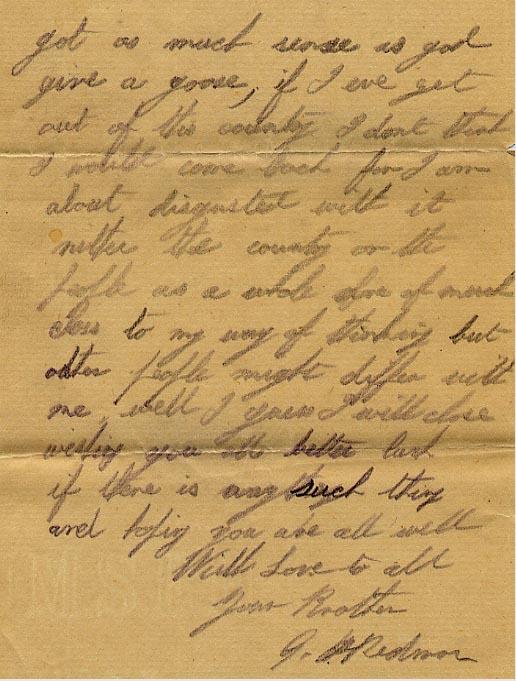 got as much sense as god
give a goose, if I ever get
out of this county I dont think
I would come back for I am
about disgusted with it
nither the county or the
people as a whole are of much
class to my way of thinking but
other people might differ with
me, well I guess I will close
wishing you all better luck
if there is any such thing
and hoping you are all well
With Love to all
Your Brother
G. Redmon